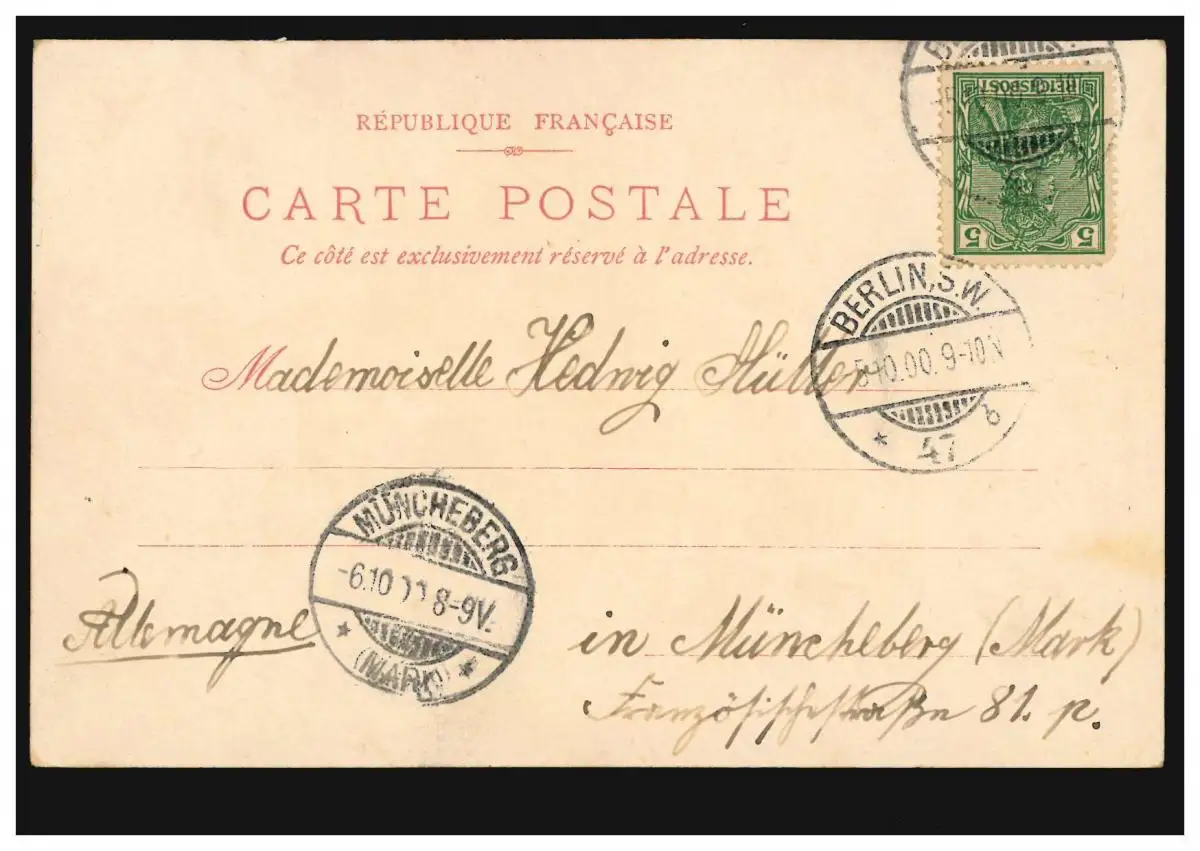 REICHSPOST
5 5
RÉPUBLIQUE FRANÇAISE
CARTE POSTALE
Ce côté est exclusivement réservé à l'adresse.
BERLIN, S.W.
5.10.00. 9-10N
* 47 b
Mademoiselle Hedwig Müller
MÜNCHEBERG
-6.10 00 8-9V.
* (MARK) *
Allemagne
in Müncheberg (Mark)
Französischestraße 81. p.